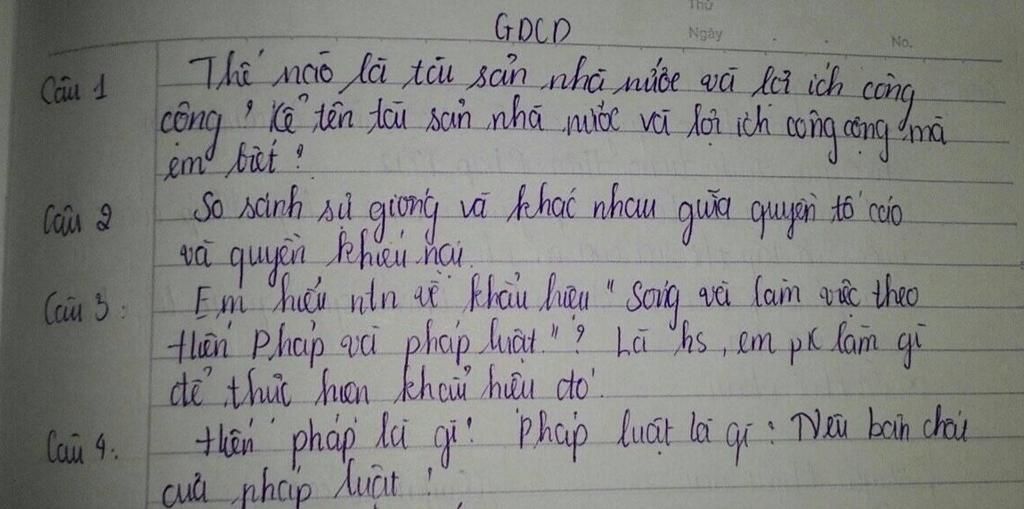 Thứ
GDCD
Ngày
No.
Câu 1 Thế nào là tài sản nhà nước và lợi ích công
cộng? Kể tên tài sản nhà nước và lợi ích công cộng mà
em biết?
Câu 2 So sánh sự giống và khác nhau giữa quyền tố cáo
và quyền khiếu nại.
Câu 3: Em hiểu ntn về khẩu hiệu "Sống và làm việc theo
Hiến Pháp và pháp luật."? Là hs, em pk làm gì
để thực hiện khẩu hiệu đó.
Câu 4: Hiến pháp là gì? Pháp luật là gì? Nêu bản chất
của pháp luật?